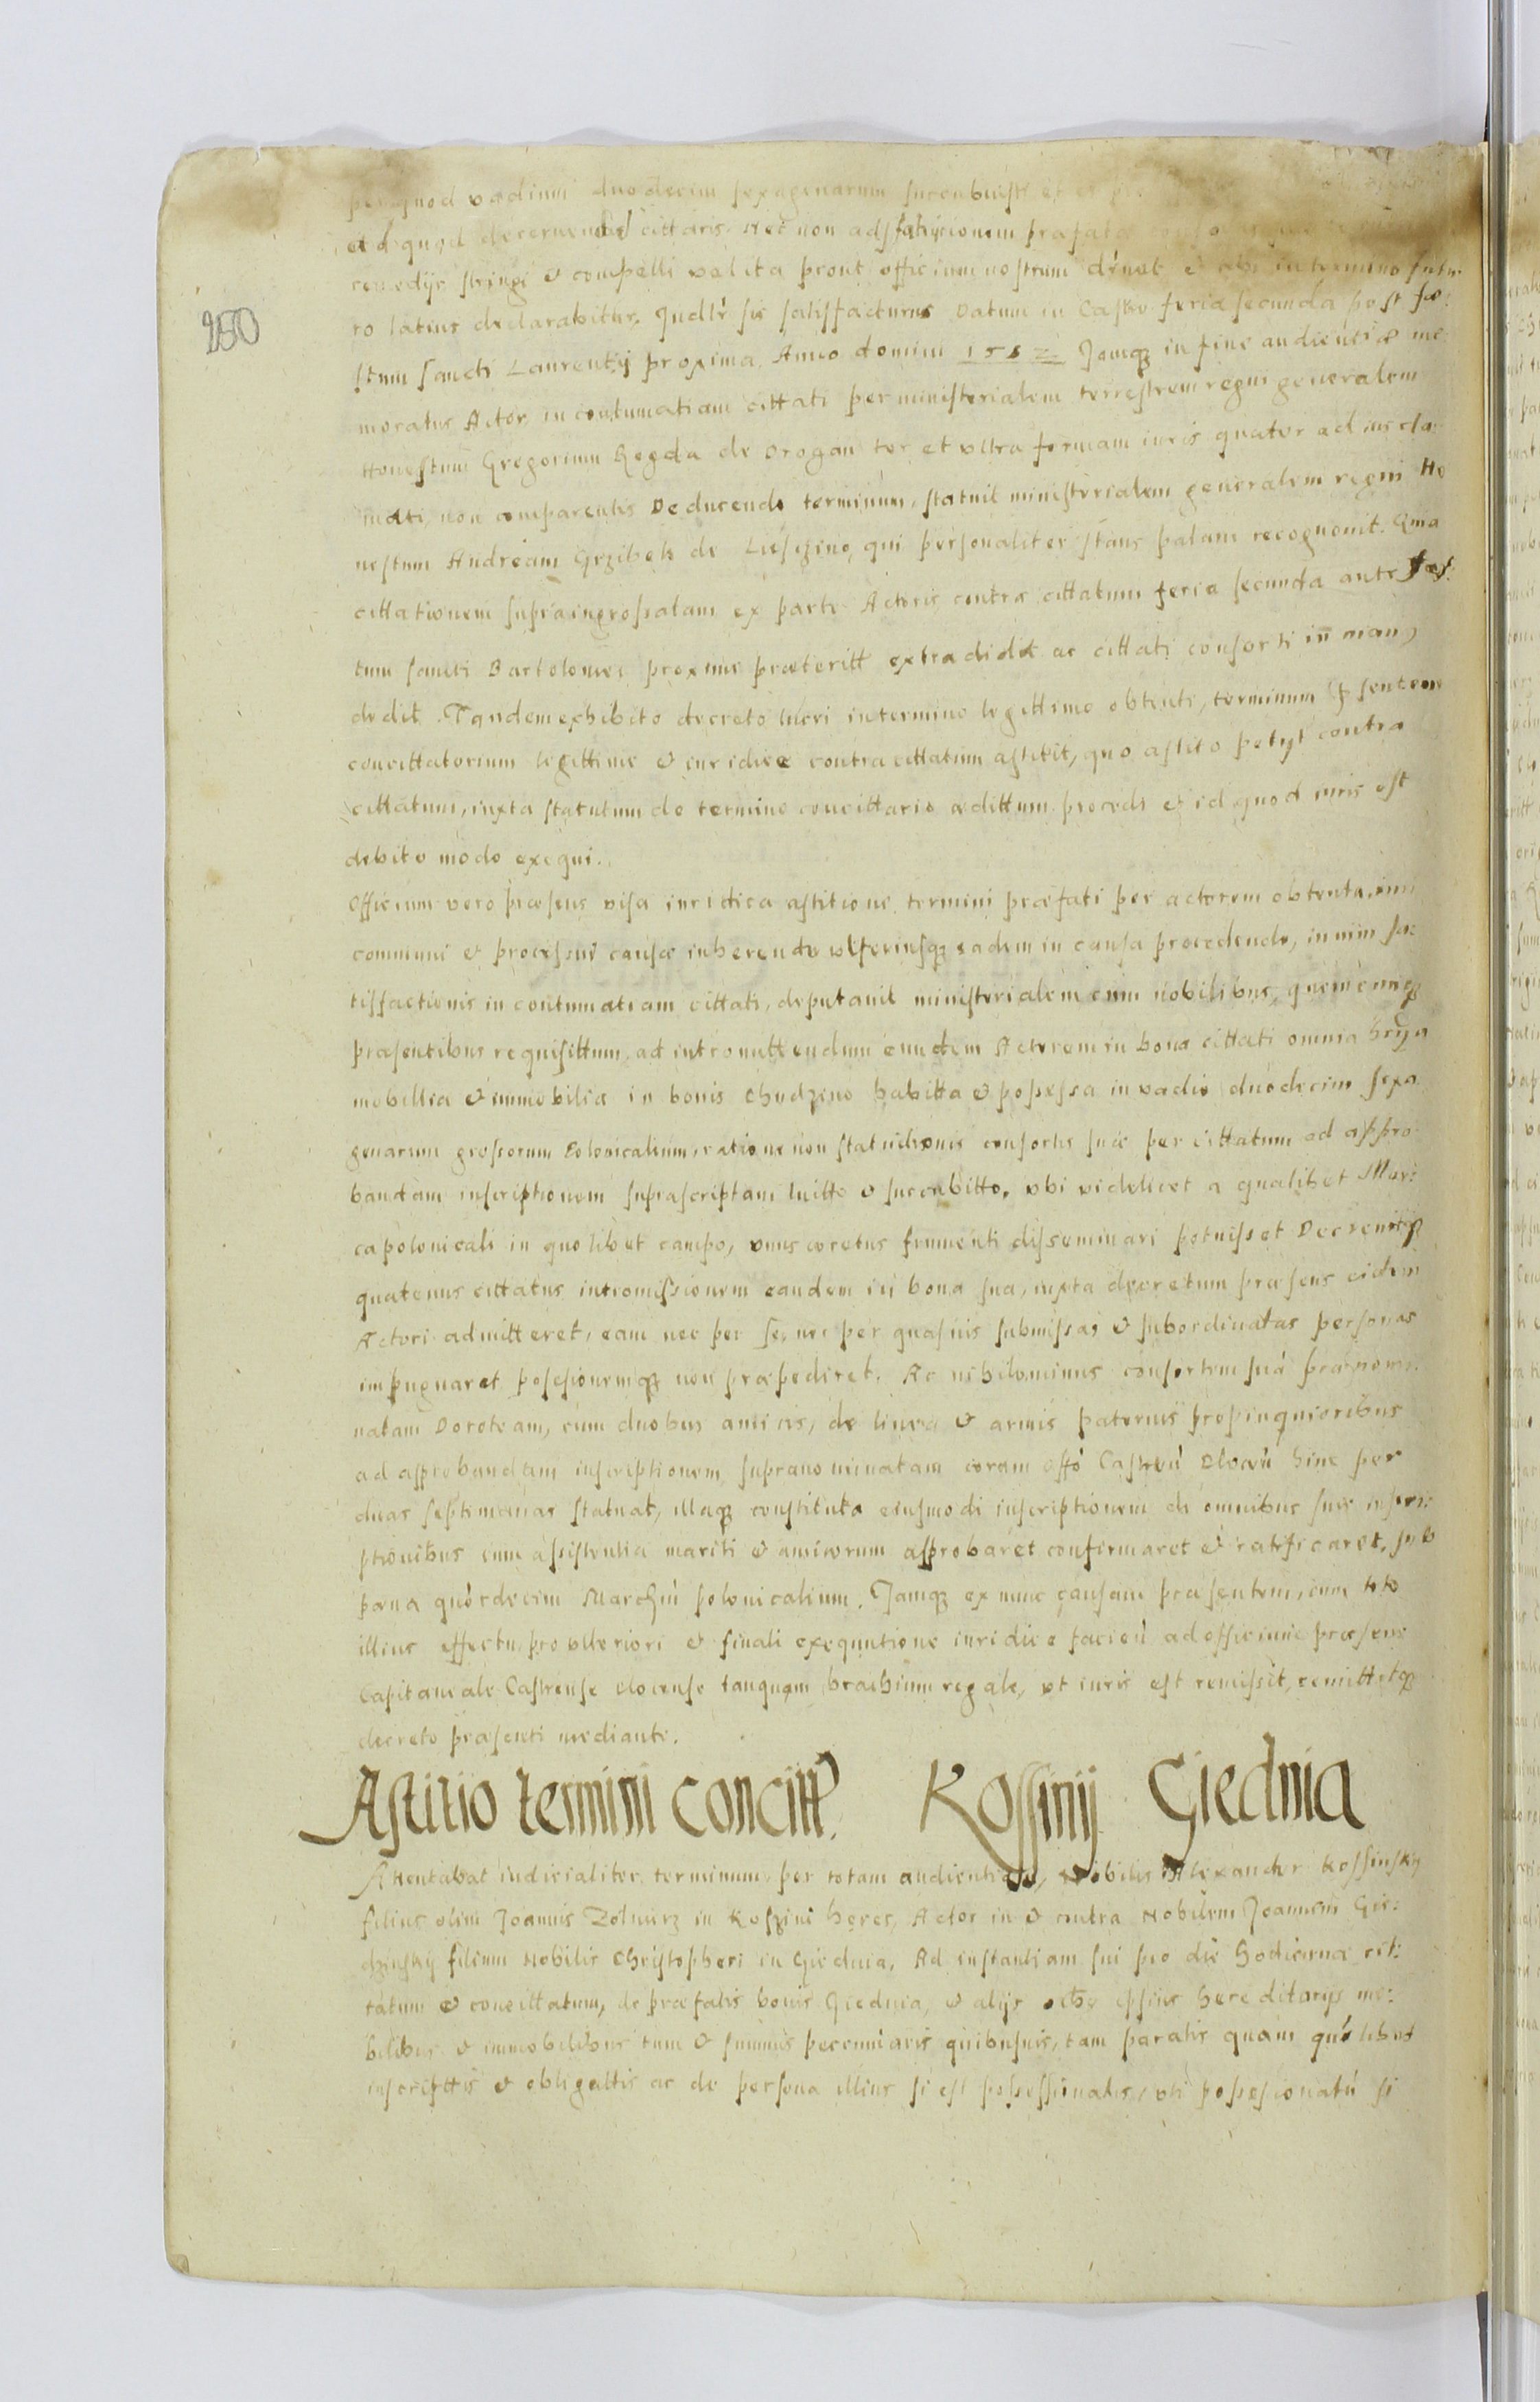 quod vadium duodecim sexagenarum succubuisti et
et quod decernendus cittaris. Nec non ad præfata
remedijs stringi & compelli velita prout officium nostrum et in termino futu
ro latius declarabitur. Judlr sis satisfacturus Datum in Castro feria secunda post fæ:
stum sancti Laurentij proxima, Anno domini 1582. Jamq3 in fine audientiæ me
moratus Actor in contumatiam cittati per ministerialem terrestrem regni generalem
Honestum Gregorium Rogda de Drogan ter et ultra formam iuris quater ad iuscla:
mati, non comparentis Deducendo terminum, statuit ministerialem generalem regni Ho
nestum Andream Grzibek de Liesizino, qui personaliter stans palam recognovit. Quia
cittationem supraingrossatam ex parte Actoris contra cittatum feria secunda ante fæs:
tum sancti Bartolomei proxime præteritt extradidit ac cittati consorti in man9
dedit. Tandem exhibito decreto lucri in termino legittime obtenti, terminum præsentem
concittatorium legittime & iuridice contra cittatum astitit, quo astito petyt contra
cittatum, iuxta statutum de termino concittario ædittum procedi et id quod iuris est
debito modo exequi.
Officium vero præsens visa iuridica astitione termini præfati per actorem obtenta, iuri
communi et processui causæ inherendo ulteriusq3 eadem in causa procedendo, in vim sa:
tisfactionis in contumatiam cittati, deputavit ministerialem cum nobilibus, quemcunq3
præsentibus requisittum, ad intromittendum eundem Actorem in bona cittati omnia
mobillia & immobilia in bonis Chudzino habitta & possessa in vadio duodecim sexa
genarum grossorum Polonicalium, ratione non statuitionis consortis suæ per cittatum ad appro
bandam inscriptionem suprascriptam luitto & succubitto, ubi videlicet a qualibet Mar:
ca polonicali in quolibet campo, unus coretus frumenti disseminari potuisset Decrevitq3
quatenus cittatus intromissionem eandem in bona sua, iuxta decretum præsens eidem
Actori admitteret, eam nec per se, nec per quasuis submissas & subordinatas personas
impugnaret possesionemq3 non præpediret. Ac nihilominus consortem suã prænomi:
natam Doroteam, cum duobus amicis, de linea & armis paternis propinquioribus
ad approbandam inscriptionem supranominatam coram offo Castren Plocen hinc per
duas septimanas statuat, illaq3 constituta eiusmodi inscriptionem de omnibus suis inscri:
ptionibus cum assistentia mariti & amicorum approbaret confirmaret & ratificaret, sub
pæna quordecim Marchm polonicalium. Jamq3 ex nunc causam præsentem, cum toto
illius effectu pro ulteriori & finali exequutione iuridice facien ad officium præsens
Capitaneale Castrense Plocense tanquam brachium regale, ut iuris est remissit, remittitq3
decreto præsenti mediante.
Astitio termini concitt. Kossinij Giednia
Attentabat iudicialiter terminum per totam audientiam, Nobilis Alexander Kossinsky
filius olim Joannis Zolnierz in Koszino heres, Actor in & contra Nobilem Joannem Gie:
dzinsky filium Nobilis Christopheri in Giednia, Ad instantiam sui pro die hodierna cit:
tatum & concittatum, de præfatis bonis Giednia, & alijs oibs ipsius hereditarijs mo:
bilibus & immobilibus tum & summis pecuniaris quibusuis, tam paratis quam quolibet
inscripttis & obligattis ac de persona illius si est possessionatus, uti possesionatu si